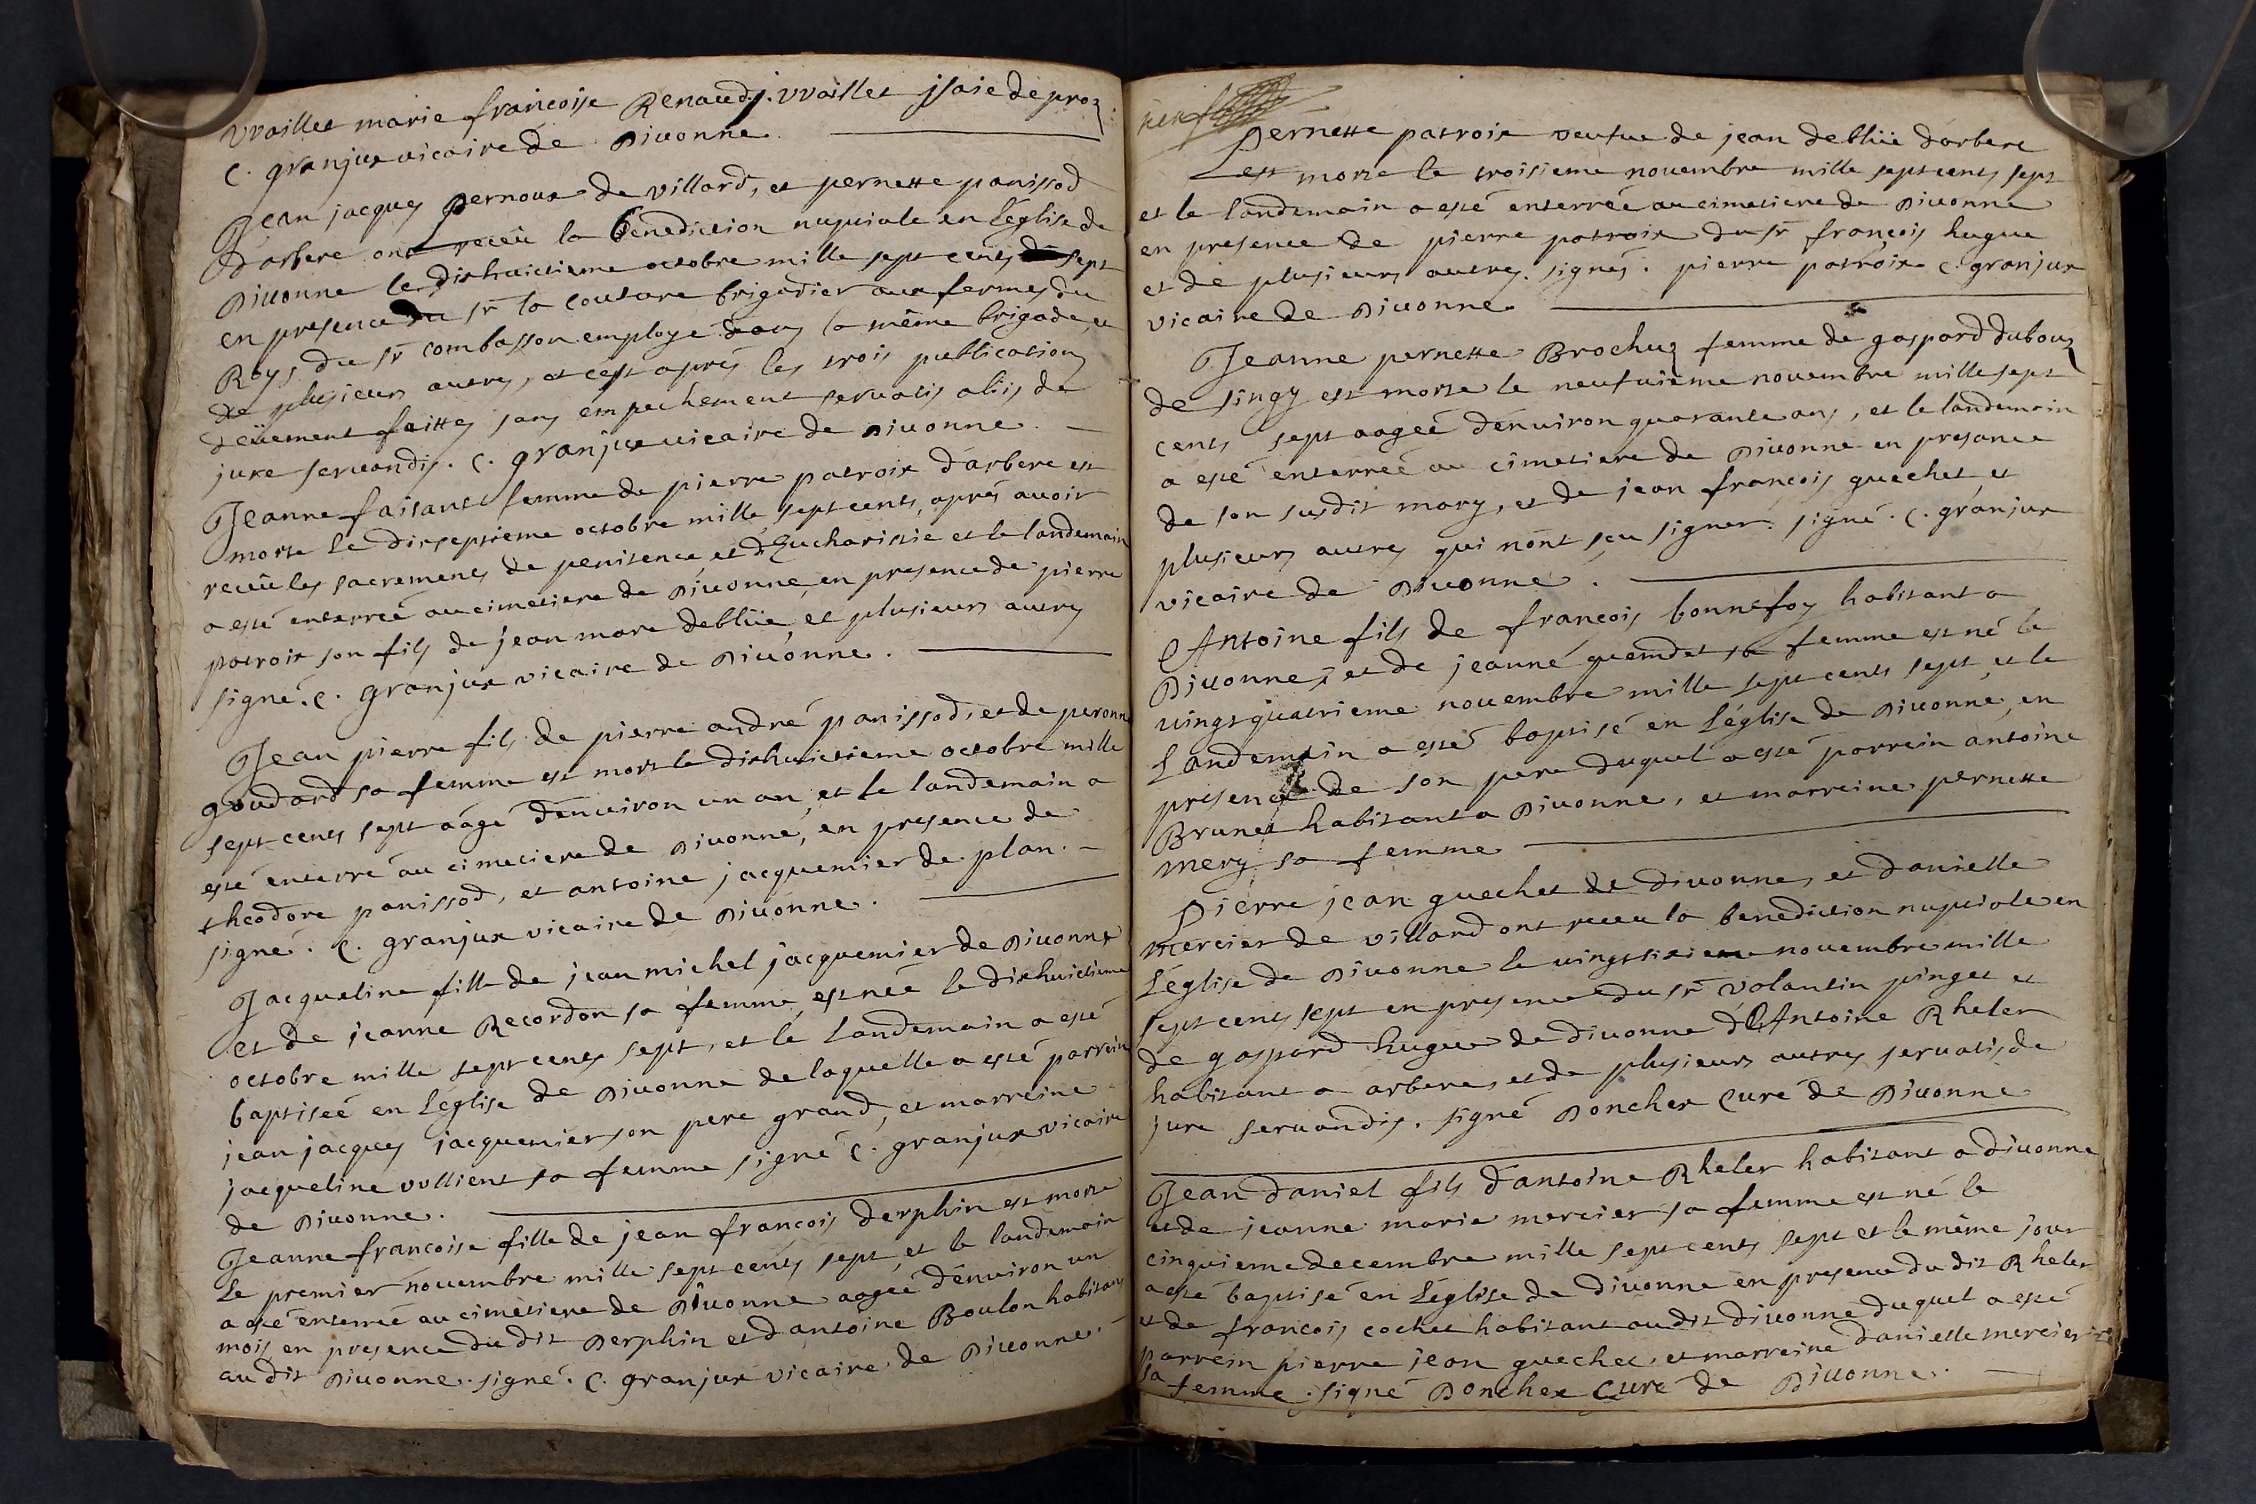 vvaillet marie francoise Renaud j. vvaillet jsaie de proz
C. granjux vicaire de Diuonne.
Jean jacques pernoux de villard, et pernette panissod
d'arbere ont receü la benediction nuptiale en L'église de
Diuonne le dixhuictieme octobre mille sept cents sept
en presence du sr la couture brigadier aux fermes du
Roys du sr combasson employé dans la même brigade, et
de plusieurs autres, et cest aprés les trois publications
deüement faittes sans empechement seruatis aliis de
jure seruandis. C. granjux vicaire de Diuonne.
Jeanne faisant femme de pierre patroix d'arbere est
morte Le dixseptieme octobre mille sept cents, aprés auoir
receü les sacrements de penitence, et d'Eucharistie et le landemain
a esté enterreé au cimetiere de Diuonne, en presence de pierre
patroix son fils de jean marc deblüe, et plusieurs autres
signé. C. granjux vicaire de Diuonne.
Jean pierre fils de pierre andré panissod, et de peronne
goudard sa femme est mort le dixhuictieme octobre mille
sept cents sept aagé d'enuiron un an, et le landemain a
esté enterré au cimetiere de Diuonne, en presence de
theodore panissod, et antoine jacquemier de plan.
signé. C. granjux vicaire de Diuonne.
Jacqueline fille de jean michel jacquemier de Diuonne
et de jeanne Recordon sa femme, est neé le dixhuictieme
octobre mille sept cents sept, et le landemain a esté
baptiseé en L'église de Diuonne de laquelle a esté parrein
jean jacques jacquemier son pere grand, et marreine
jacqueline vullient sa femme signé C. granjux vicaire
de Diuonne.
Jeanne francoise fille de jean francois derphin est morte
Le premier nouembre mille sept cents sept, et le landemain
a esté enterreé au cimetiere de Diuonne aageé d'enuiron un
mois en presence du dit Derphin et d'antoine Boulon habitans
au dit Diuonne. signé. C. granjux vicaire de Diuonne.
Pernette patroix veufue de jean deblüe d'arbere
est morte le troisieme nouembre mille sept cents sept
et le landemain a esté enterreé au cimetiere de Diuonne
en presence de pierre patroix du sr françois hugue
et de plusieurs autres. signés. pierre patroix C. granjux
vicaire de Diuonne
Jeanne pernette Brochuz femme de gaspard dubouz
de singy est morte le neufuieme nouembre mille sept
cents sept aageé d'enuiron quarante ans, et le landemain
a esté enterreé au cimetiere de Diuonne en presance
de son susdit mary, et de jean françois guechet, et
plusieurs autres qui n'ont sçu signer. signé. C. granjux
vicaire de Diuonne.
Antoine fils de françois bonnefoy habitant a
Diuonne, et de jeanne quemdet sa femme est né le
uingtquatrieme nouembre mille sept cents sept, et le
Landemain a esté baptisé en L'église de Diuonne, en
presence de son pere duquel a esté parrein antoine
Brunet habitant a Diuonne, et marreine pernette
mery sa femme
Pierre jean guechet de diuonne, et danielle
mercier de villard ont receu la benediction nuptiale en
L'église de Diuonne le uingtsixieme nouembre mille
sept cents sept en presence du sr Valantin pinget et
de gaspard hugue de diuonne d'Antoine Rheler
habitant a arbere, et de plusieurs autres seruatis de
jure seruandis. signé Doncher Curé de Diuonne
Jean daniel fils d'antoine Rheler habitant a diuonne
et de jeanne marie mercier sa femme est né le
cinquieme decembre mille sept cents sept et le même jour
a esté baptisé en L'église de diuonne en presence du dit Rheler
et de francois cochet habitant au dit diuonne duquel a esté
parrein pierre jean guechet, et marreine danielle mercier
sa femme. signé Doncher Curé de Diuonne.